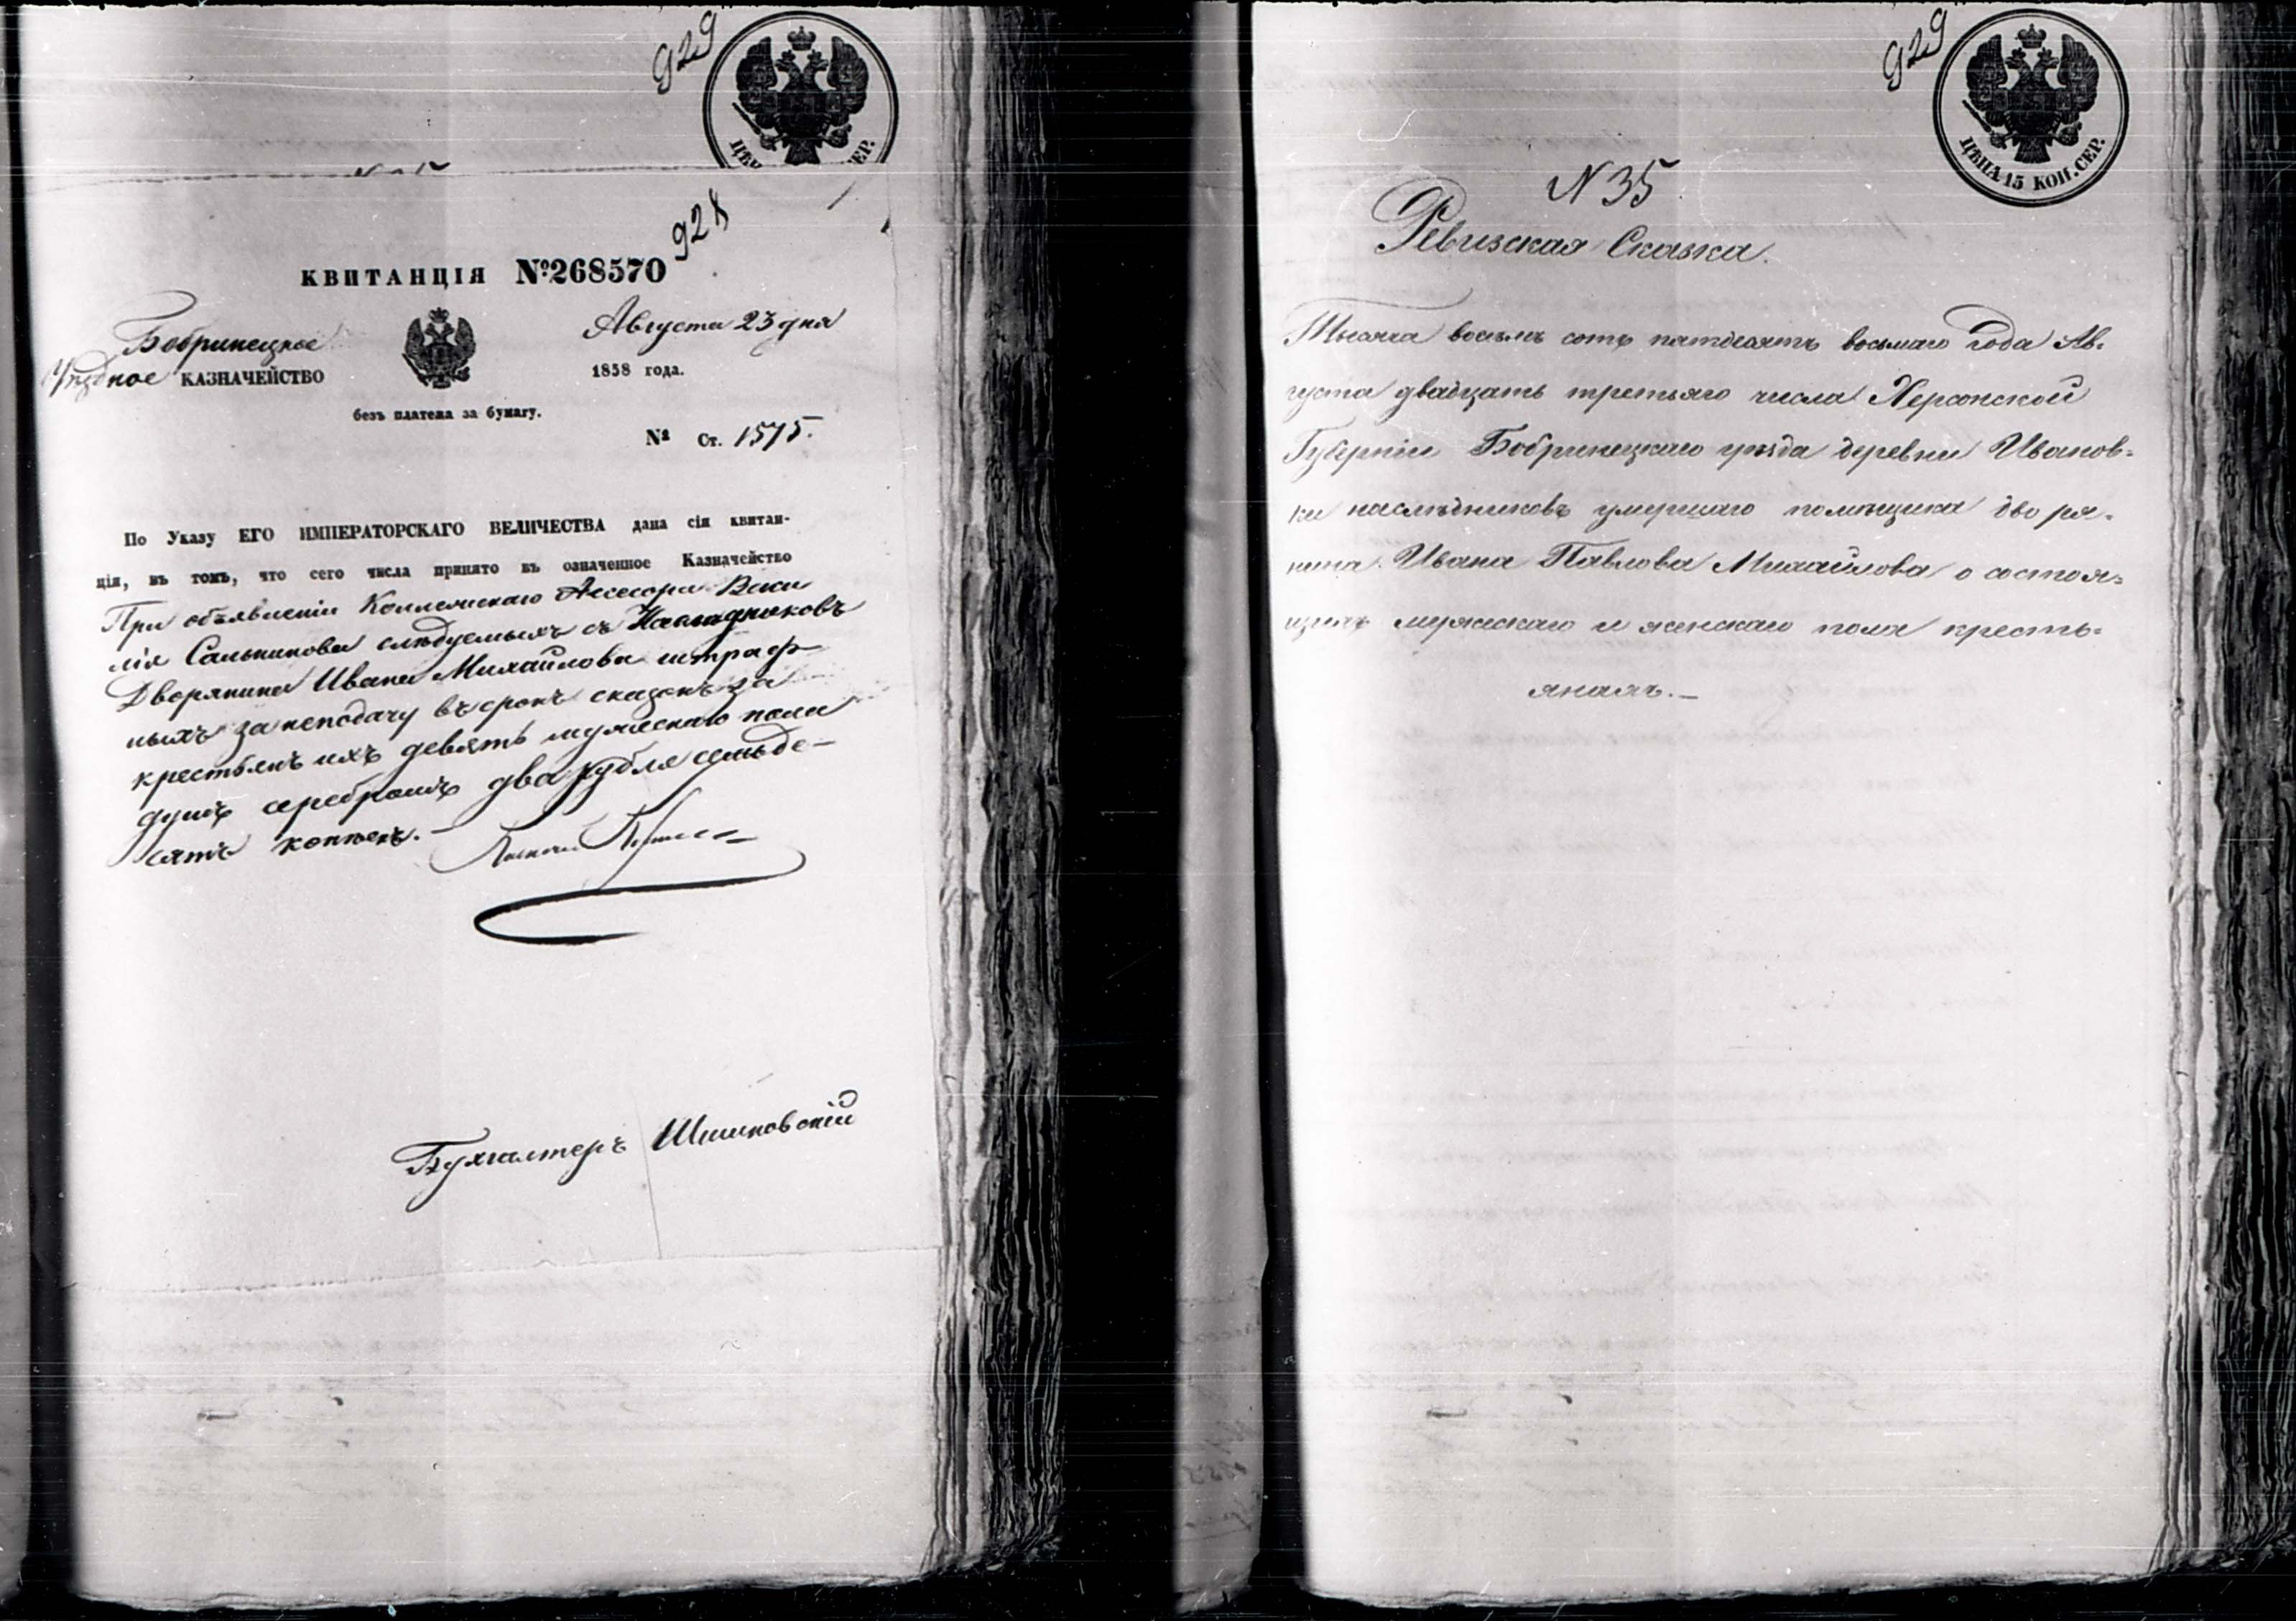 929
ЦѢН СЕР.
928
КВИТАНЦІЯ №268570
Бобринецкое
Уѣздное КАЗНАЧЕЙСТВО
Августа 23 дня
1858 года.
безъ платежа за бумагу.
№ Ст. 1575.
По Указу ЕГО ИМПЕРАТОРСКАГО ВЕЛИЧЕСТВА дана сія квитан-
ція, въ томъ, что сего числа принято въ означенное Казначейство
При объявленіи Коллежскаго Асесора Васи
лія Санникова слѣдуемыхъ съ Наслѣдниковъ
Дворянина Ивана Михайлова штраф-
ныхъ за неподачу въ срокъ сказокъ за
крестьянъ ихъ девять мужескаго пола
душъ серебромъ два рубля семьде-
сятъ копѣекъ.-
Бухгалтеръ Шишковскій
929
ЦѢНА 15 КОП. СЕР.
N 35
Ревизская Сказка.
Тысяча восемь сотъ пятдесятъ восьмаго года Ав-
густа двадцать третьяго числа Херсонской
Губерніи Бобринецкаго уѣзда деревни Иванов-
ки наслѣдниковъ умершаго помѣщика дворя-
нина Ивана Павлова Михайлова о состоя-
щихъ мужескаго и женскаго пола кресть-
янахъ.-